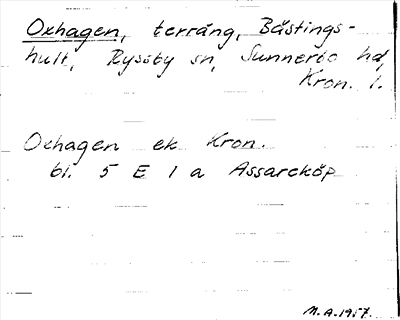 Oxhagen, terräng, Bästings-
hult, Ryssby sn, Sunnerbo hd,
Kron. l.
Oxhagen ek Kron.
bl. 5 E 1 a Assarcköp
M.A. 1957.